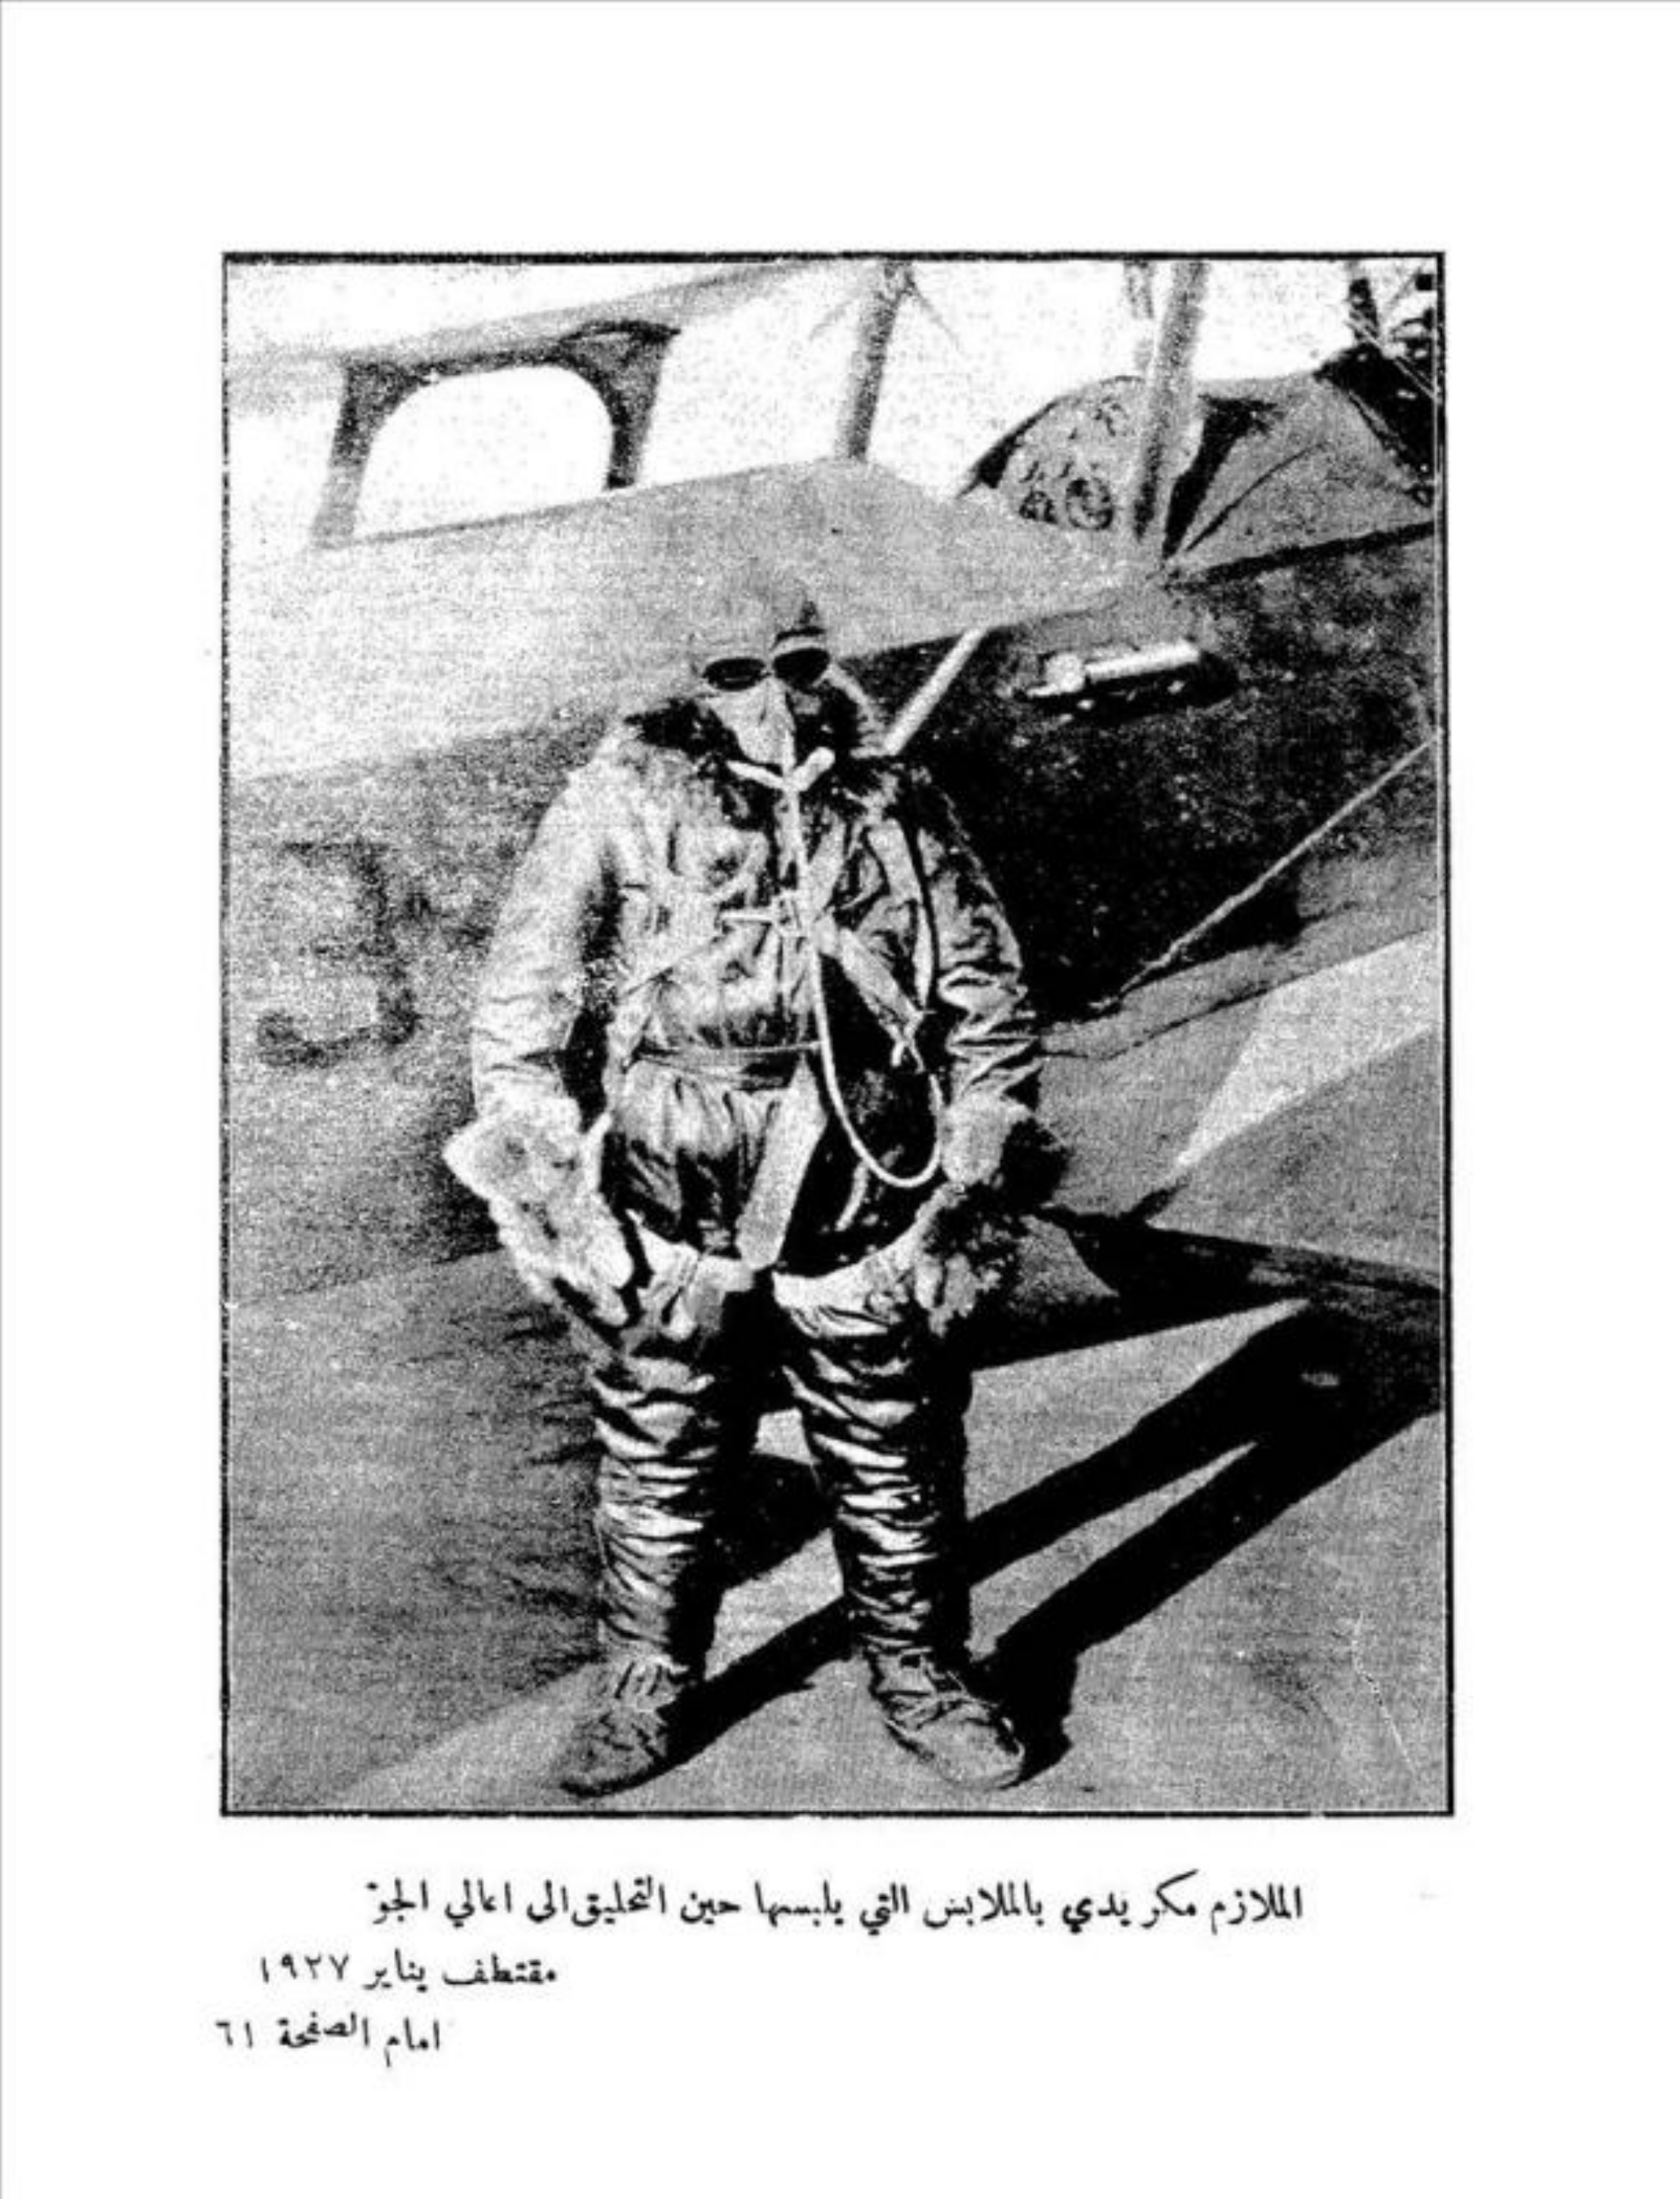 الملازم مكريدي بالملابس التي يلبسها حين التحليق الى اعالي الجوّ
مقتطف يناير ١٩٢٧
امام الصفحة ٦١